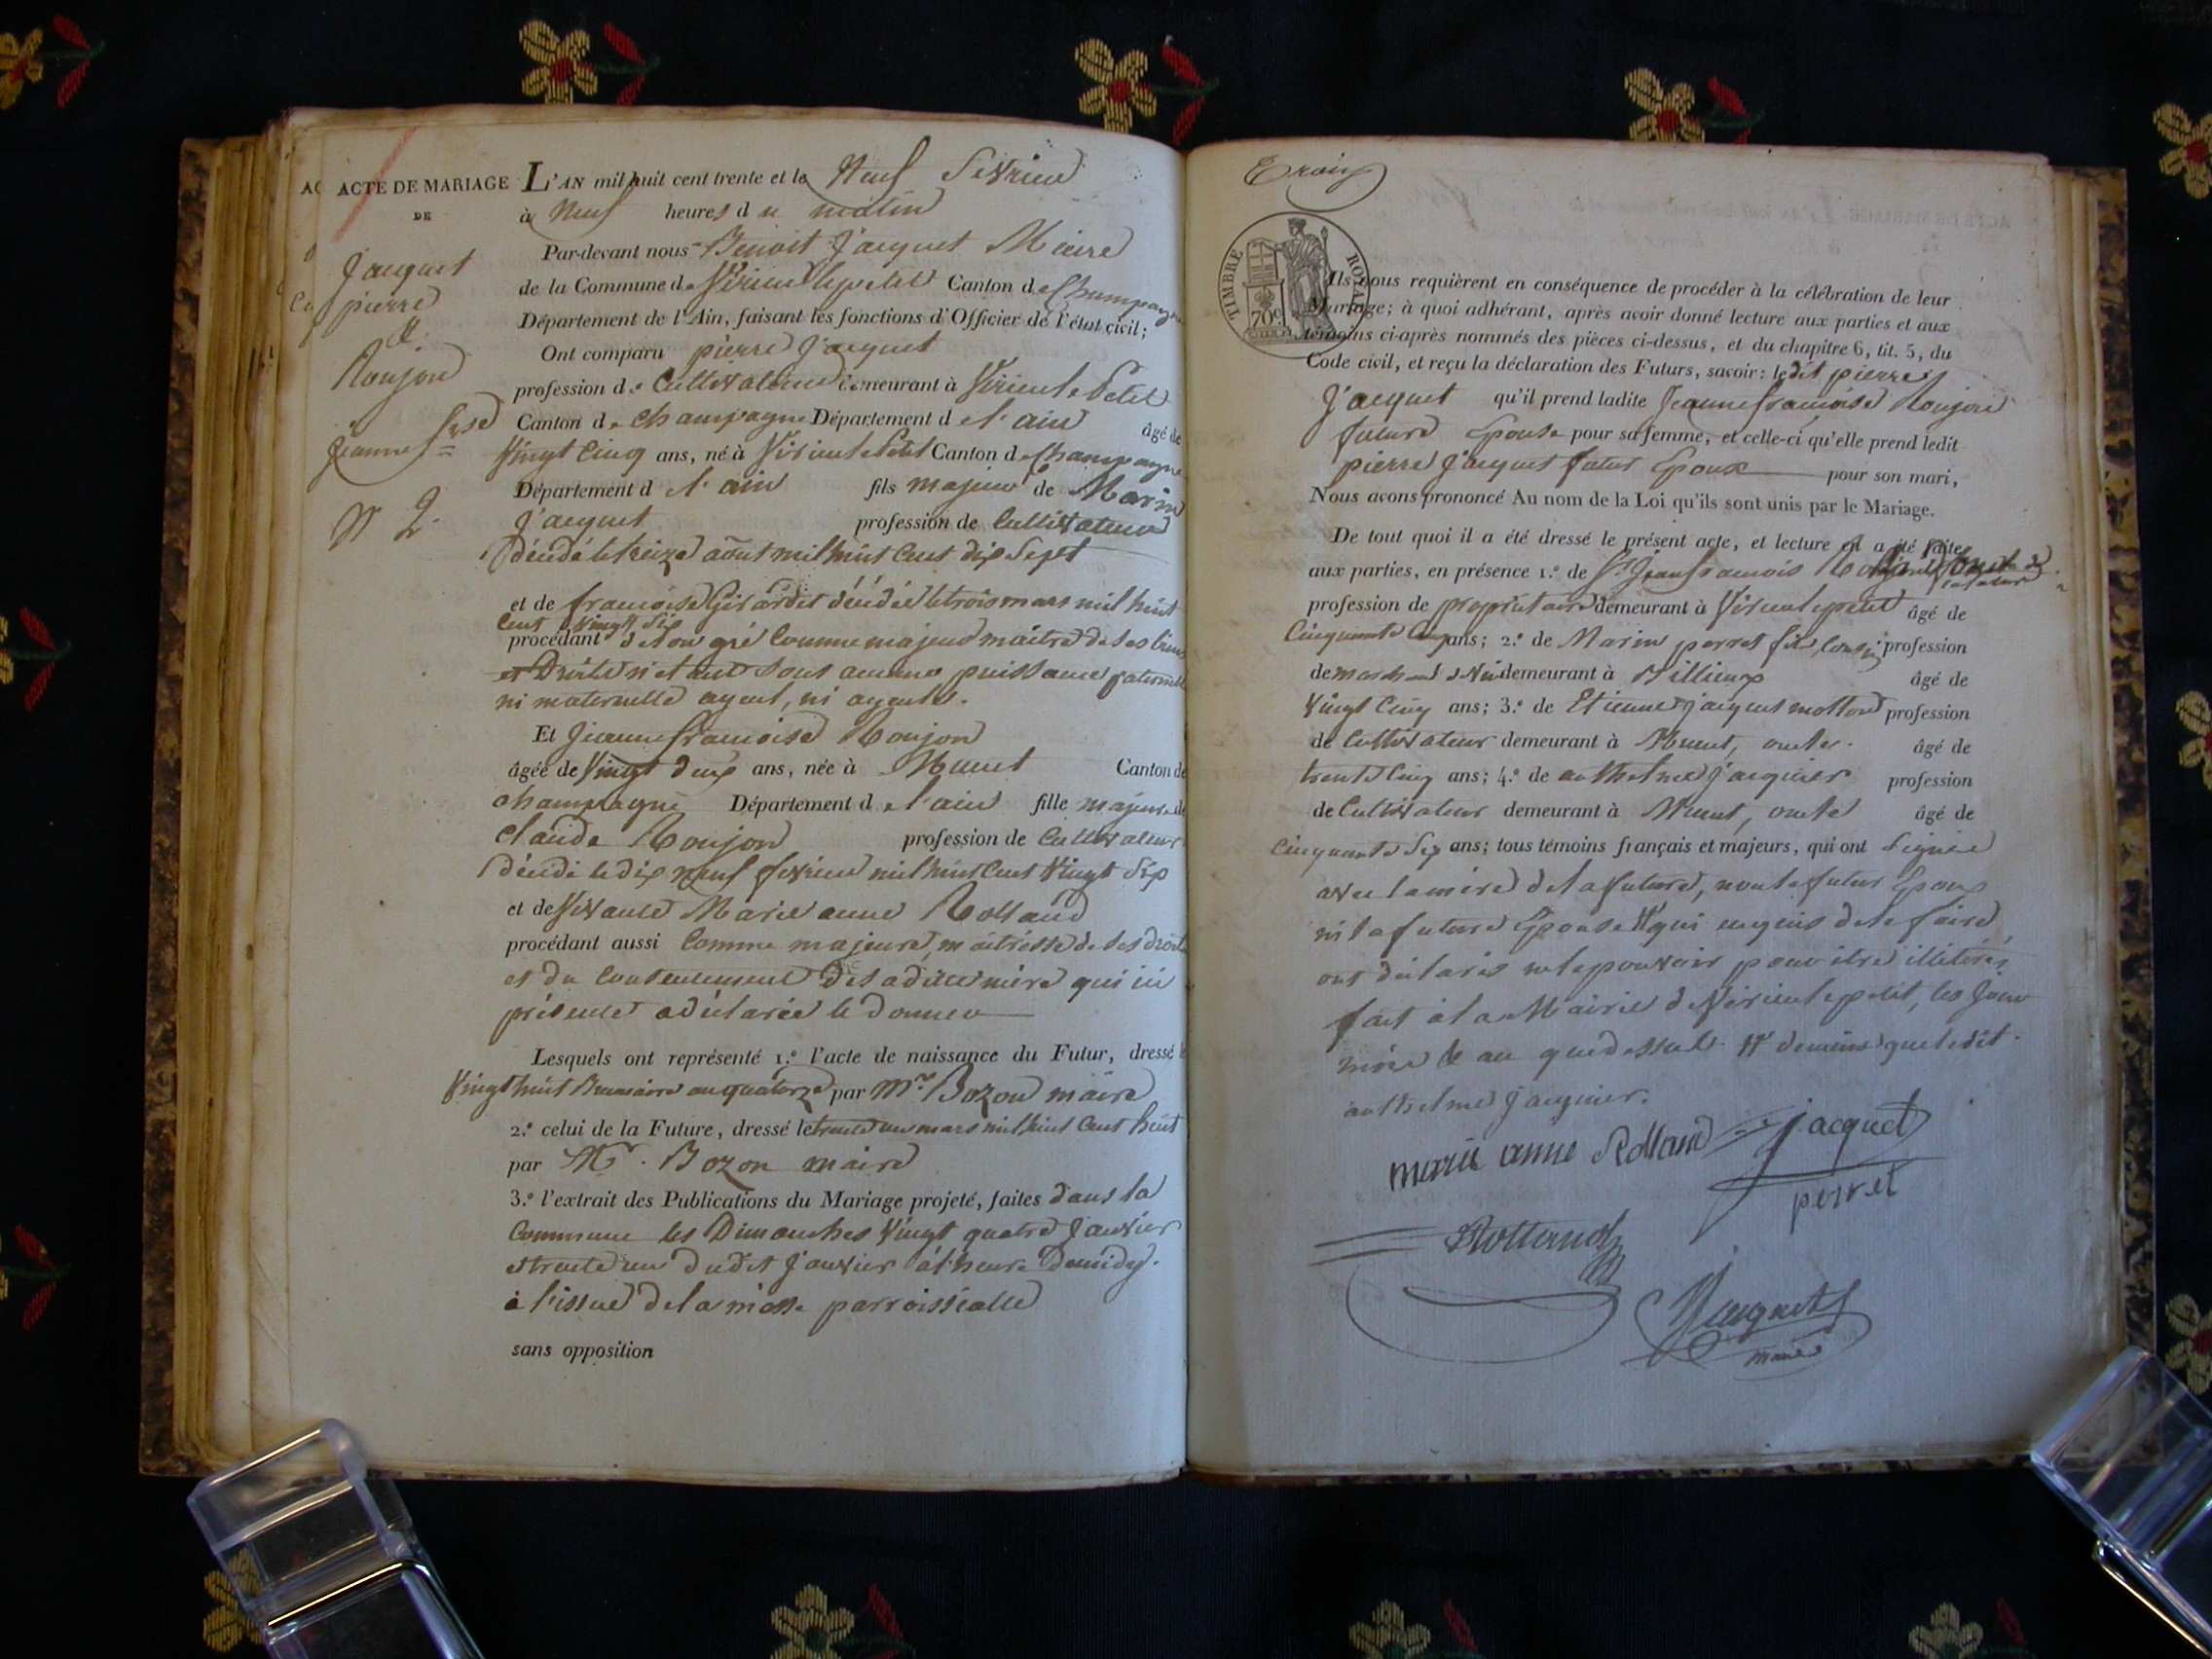 ACTE DE MARIAGE
DE
Jacquet
pierre
&
Roujon
Jeanne fr.se
N 2.
L'AN mil huit cent trente et le Neuf fevrier
à Neuf heures du matin
Par-devant nous Benoit Jacquet Maire
de la Commune de Virieu le petit Canton de Champagne
Département de l'Ain, faisant les fonctions d'Officier de l'état civil;
Ont comparu pierre Jacquet
profession de Cultivateur demeurant à Virieu le Petit
Canton de Champagne Département de l'ain âgé de
Vingt Cinq ans, né à Virieu le Petit Canton de Champagne
Département de l'ain fils majeur de Marin
Jacquet profession de Cultivateur
décédé le treize août mil huit Cent dix Sept
et de francoise Girardet décédée le trois mars mil huit
Cent Vingt Six
procédant de son gré Comme majeur maitre de ses biens
et Droits n'etant sous aucune puissance paternelle
ni maternelle ayeul, ni ayeule.
Et Jeanne francoise Roujon
âgée de Vingt deux ans, née à Canton de
champagne Département de l'ain fille majeure de
Claude Roujon profession de Cultivateur
décédé le dix neuf fevrier mil huit Cent Vingt Six
et de Vivante Marie anne Rolland
procédant aussi Comme majeure, maitresse de ses droits
et du Consentement de sadite mère qui ici
présente a déclarée le donner
Lesquels ont représenté 1.º l'acte de naissance du Futur, dressé le
Vingt huit Brumaire an quatorze par Mr. Bozon maire
2.º celui de la Future, dressé le trente un mars mil huit Cent huit
par Mr. Bozon maire
3.º l'extrait des Publications du Mariage projeté, faites dans la
Commune les Dimanches Vingt quatre Janvier
et trente un dudit Janvier à l'heure de midy.
à l'issue de la messe parroissialle
sans opposition
Trois
TIMBRE ROYAL
70c
Ils nous requièrent en conséquence de procéder à la célébration de leur
Mariage; à quoi adhérant, après avoir donné lecture aux parties et aux
témoins ci-après nommés des pièces ci-dessus, et du chapitre 6, tit. 5, du
Code civil, et reçu la déclaration des Futurs, savoir: ledit pierre
Jacquet qu'il prend ladite Jeanne francoise Roujon
future Epouse pour sa femme, et celle-ci qu'elle prend ledit
pierre Jacquet futur Epoux pour son mari,
Nous avons prononcé Au nom de la Loi qu'ils sont unis par le Mariage.
De tout quoi il a été dressé le présent acte, et lecture en a été faite
aux parties, en présence 1.º de Sr. Jean francois Rolland oncle de
la future
profession de propriétaire demeurant à Virieu le petit âgé de
Cinquante ans; 2.º de Marin perret fils, cousin profession
de marchand demeurant à âgé de
Vingt Cinq ans; 3.º de Etienne Jacquet mollon profession
de Cultivateur demeurant à oncle. âgé de
trente Cinq ans; 4.º de anthelme Jacquier profession
de Cultivateur demeurant à oncle âgé de
Cinquante Six ans; tous témoins français et majeurs, qui ont Signé
avec la mère de la future, non le futur Epoux
ni la future Epouse # qui enquis de le faire
ont déclarés ne le pouvoir pour être illitérés,
fait à la Mairie de Virieu le petit, les Jour
mois & an que dessus # de même que ledit
anthelme Jacquier.
marie anne Rolland jacquet
perret
Rolland
Jacquet
maire